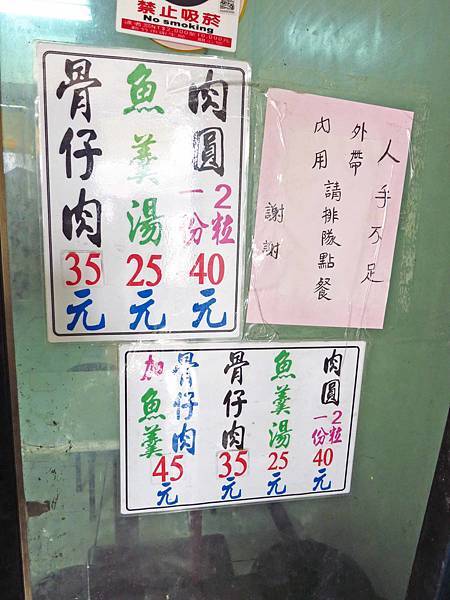 禁止吸菸
No smoking
肉圓
一份2粒
40元
魚羹湯
25元
骨仔肉
35元
人手不足
外帶
內用
請排隊點餐
謝謝
肉圓
一份2粒
40元
魚羹湯
25元
骨仔肉
35元
骨仔肉
加魚羹
45元